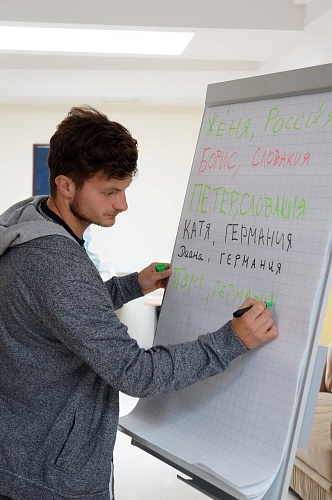 Женя, Россия
Борис, Словакия
ПЕТЕР, СЛОВАКИЯ
КАТЯ, ГЕРМАНИЯ
Диана, ГЕРМАНИЯ
ТОМ, ГЕРМАНИ